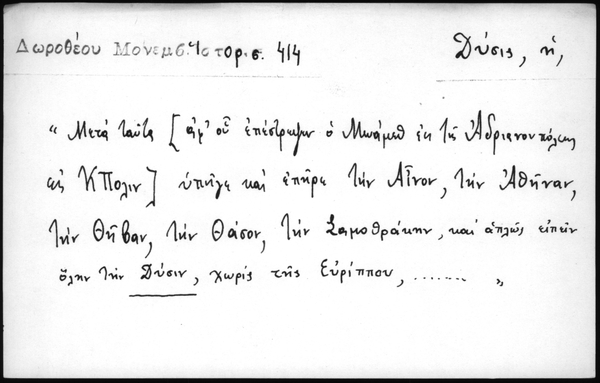 Δωροθέου Μονεμβ. Ἱστορ. σ. 414
Δύσις, ἡ,
" Μετὰ ταῦτα [ἀφ' οὗ ἐπέστρεψεν ὁ Μωάμεθ ἐκ τῆς Ἀδριανουπόλεως
εἰς ΚΠολιν] ὑπῆγε καὶ ἐπῆρε τὴν Αἶνον, τὴν Ἀθήναν,
τὴν Θῆβαν, τὴν Θάσον, τὴν Σαμοθράκην, καὶ ἁπλῶς εἰπεῖν
ὅλην τὴν Δύσιν, χωρὶς τῆς Εὐρίππου, ....... "